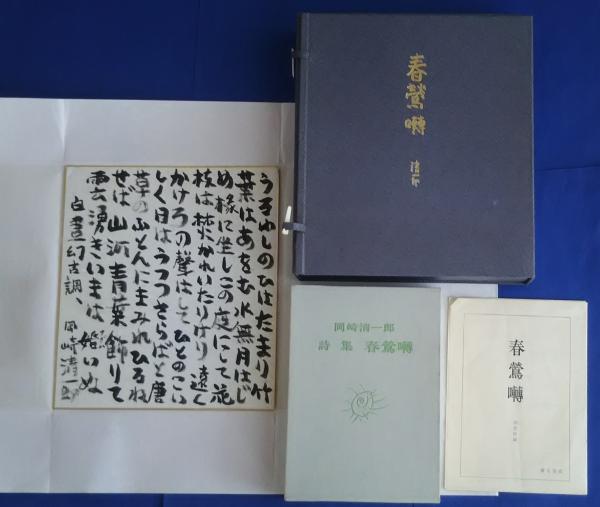 うらかしのひはたまり竹
葉はあをむ水無月はじ
め椽に坐しこの度にして花
枝は焚かれいたりけり遠く
かけろの聲はしてひとのこい
しく日はうつつさらばと唐
草のふとんに生みれひるね
せば山河青葉飾りて
雲湧きいまは婚いぬ
白晝幻古調、岡崎清一郎
春鶯囀
清一郎
岡崎清一郎
詩集 春鶯囀
春鶯囀